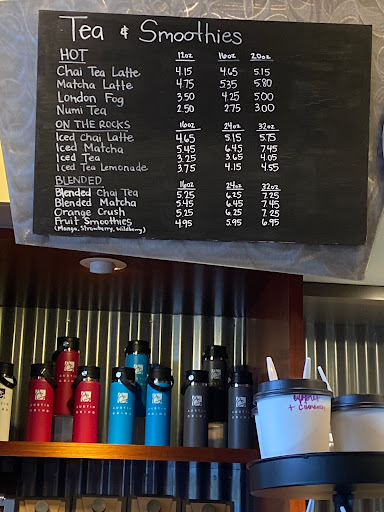 Tea & Smoothies
HOT 12oz 16oz 20oz
Chai Tea Latte 4.15 4.65 5.15
Matcha Latte 4.75 5.35 5.80
London Fog 3.50 4.25 5.00
Numi Tea 2.50 2.75 3.00
ON THE ROCKS 16oz 24oz 32oz
Iced Chai Latte 4.65 5.15 5.75
Iced Matcha 5.45 6.45 7.45
Iced Tea 3.25 3.65 4.05
Iced Tea Lemonade 3.75 4.15 4.55
BLENDED 16oz 24oz 32oz
Blended Chai Tea 5.25 6.25 7.25
Blended Matcha 5.45 6.45 7.45
Orange Crush 5.25 6.25 7.25
Fruit Smoothies 4.95 5.95 6.95
(Mango, Strawberry, Wildberry)
AUSTIN
GRIND
AUSTIN
GRIND
AUSTIN
GRIND
AUSTIN
GRIND